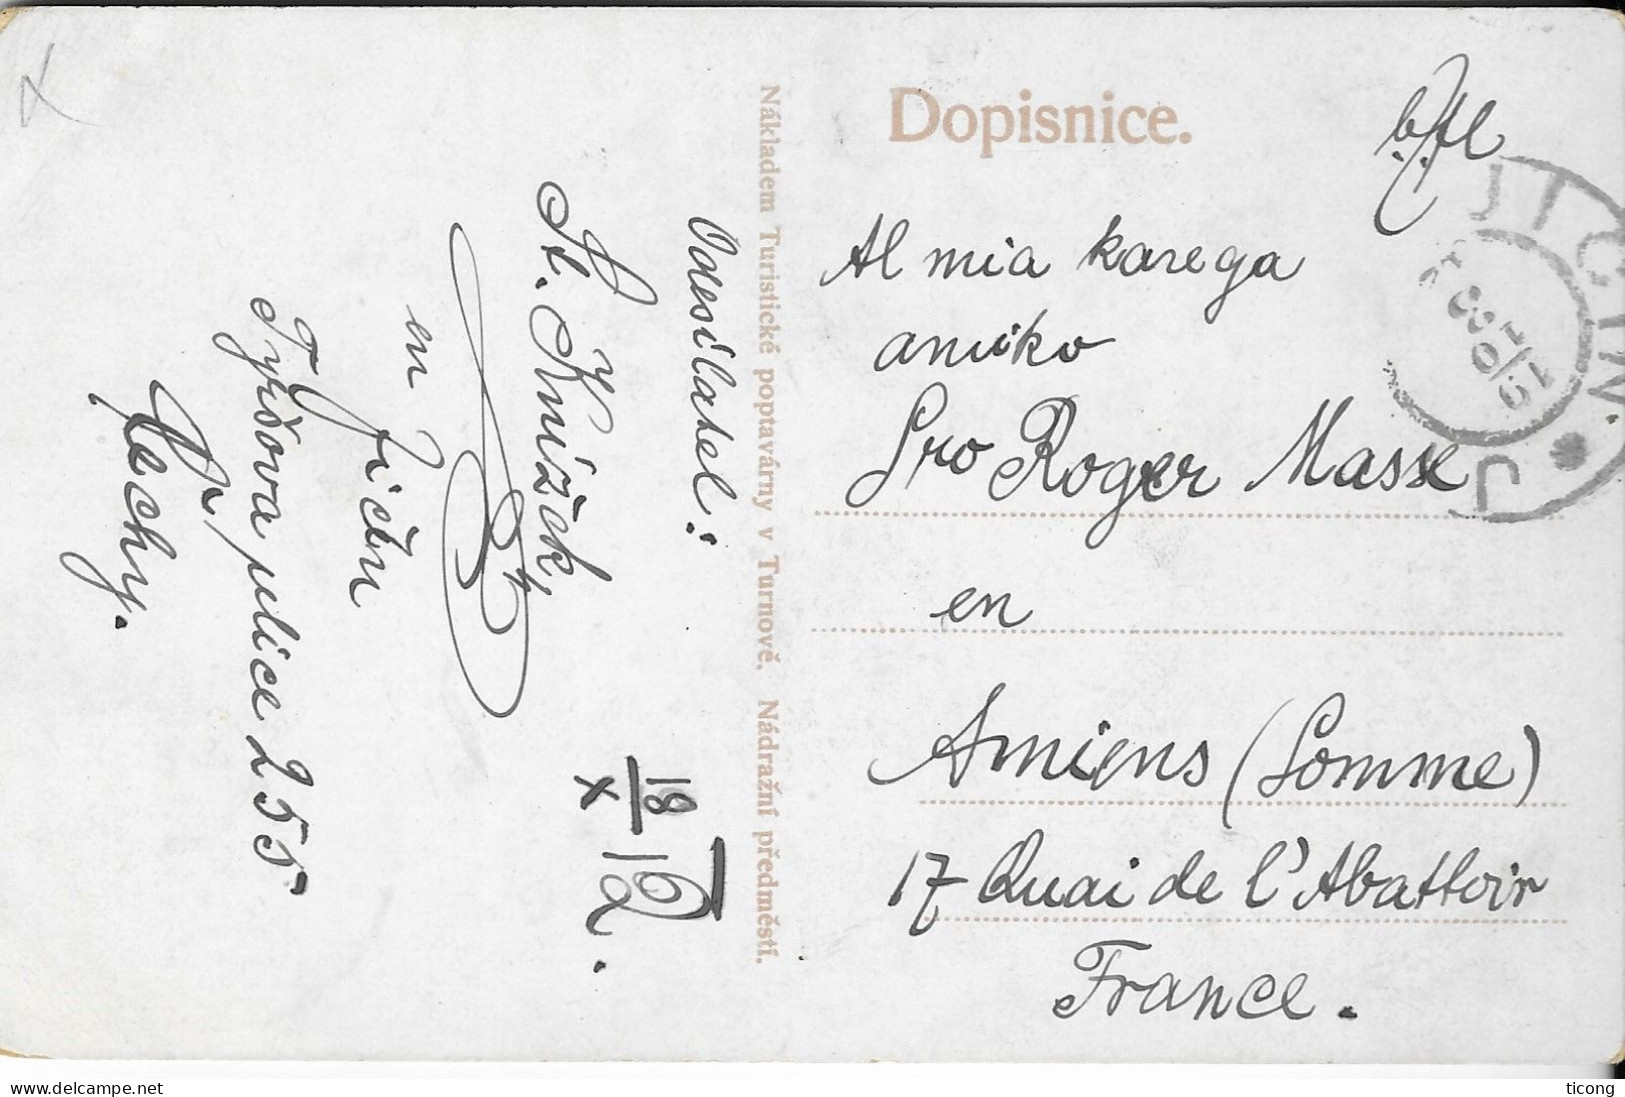 Dopisnice.
Al mia karega
amiko
Sro Roger Masse
en
Amiens (Somme)
17 Quai de l'Abattoir
France.
Nákladem Turistické poptavárny v Turnově. Nádražní předměstí.
Odesílatel:
St. Knížek,
en
Jičín
Tyršova ulice 255
Čechy.
18
X
12.
JIČÍN
19
X
12
J
www.delcampe.net
ticong